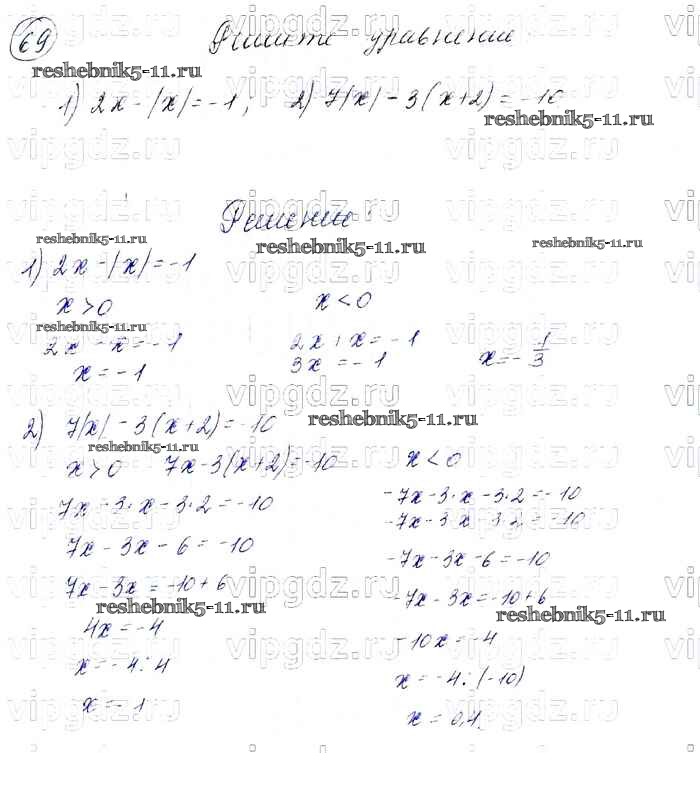 69 Решите уравнение
reshebnik5-11.ru
1) 2x - |x| = -1; 2) 7|x| - 3(x+2) = -10
reshebnik5-11.ru
Решение
reshebnik5-11.ru reshebnik5-11.ru reshebnik5-11.ru
1) 2x - |x| = -1
x > 0 x < 0
reshebnik5-11.ru
2x - x = -1 2x + x = -1
x = -1 3x = -1 x = - 1/3
2) 7|x| - 3(x+2) = -10 reshebnik5-11.ru
reshebnik5-11.ru
x > 0 7x - 3(x+2) = -10 x < 0
7x - 3·x - 3·2 = -10 -7x - 3·x - 3·2 = -10
-7x - 3·x - 3·2 = -10
7x - 3x - 6 = -10 -7x - 3x - 6 = -10
7x - 3x = -10 + 6 -7x - 3x = -10 + 6
reshebnik5-11.ru reshebnik5-11.ru
4x = -4 -10x = -4
x = -4 : 4 x = -4 : (-10)
x = -1 x = 0,4.
vipgdz.ru